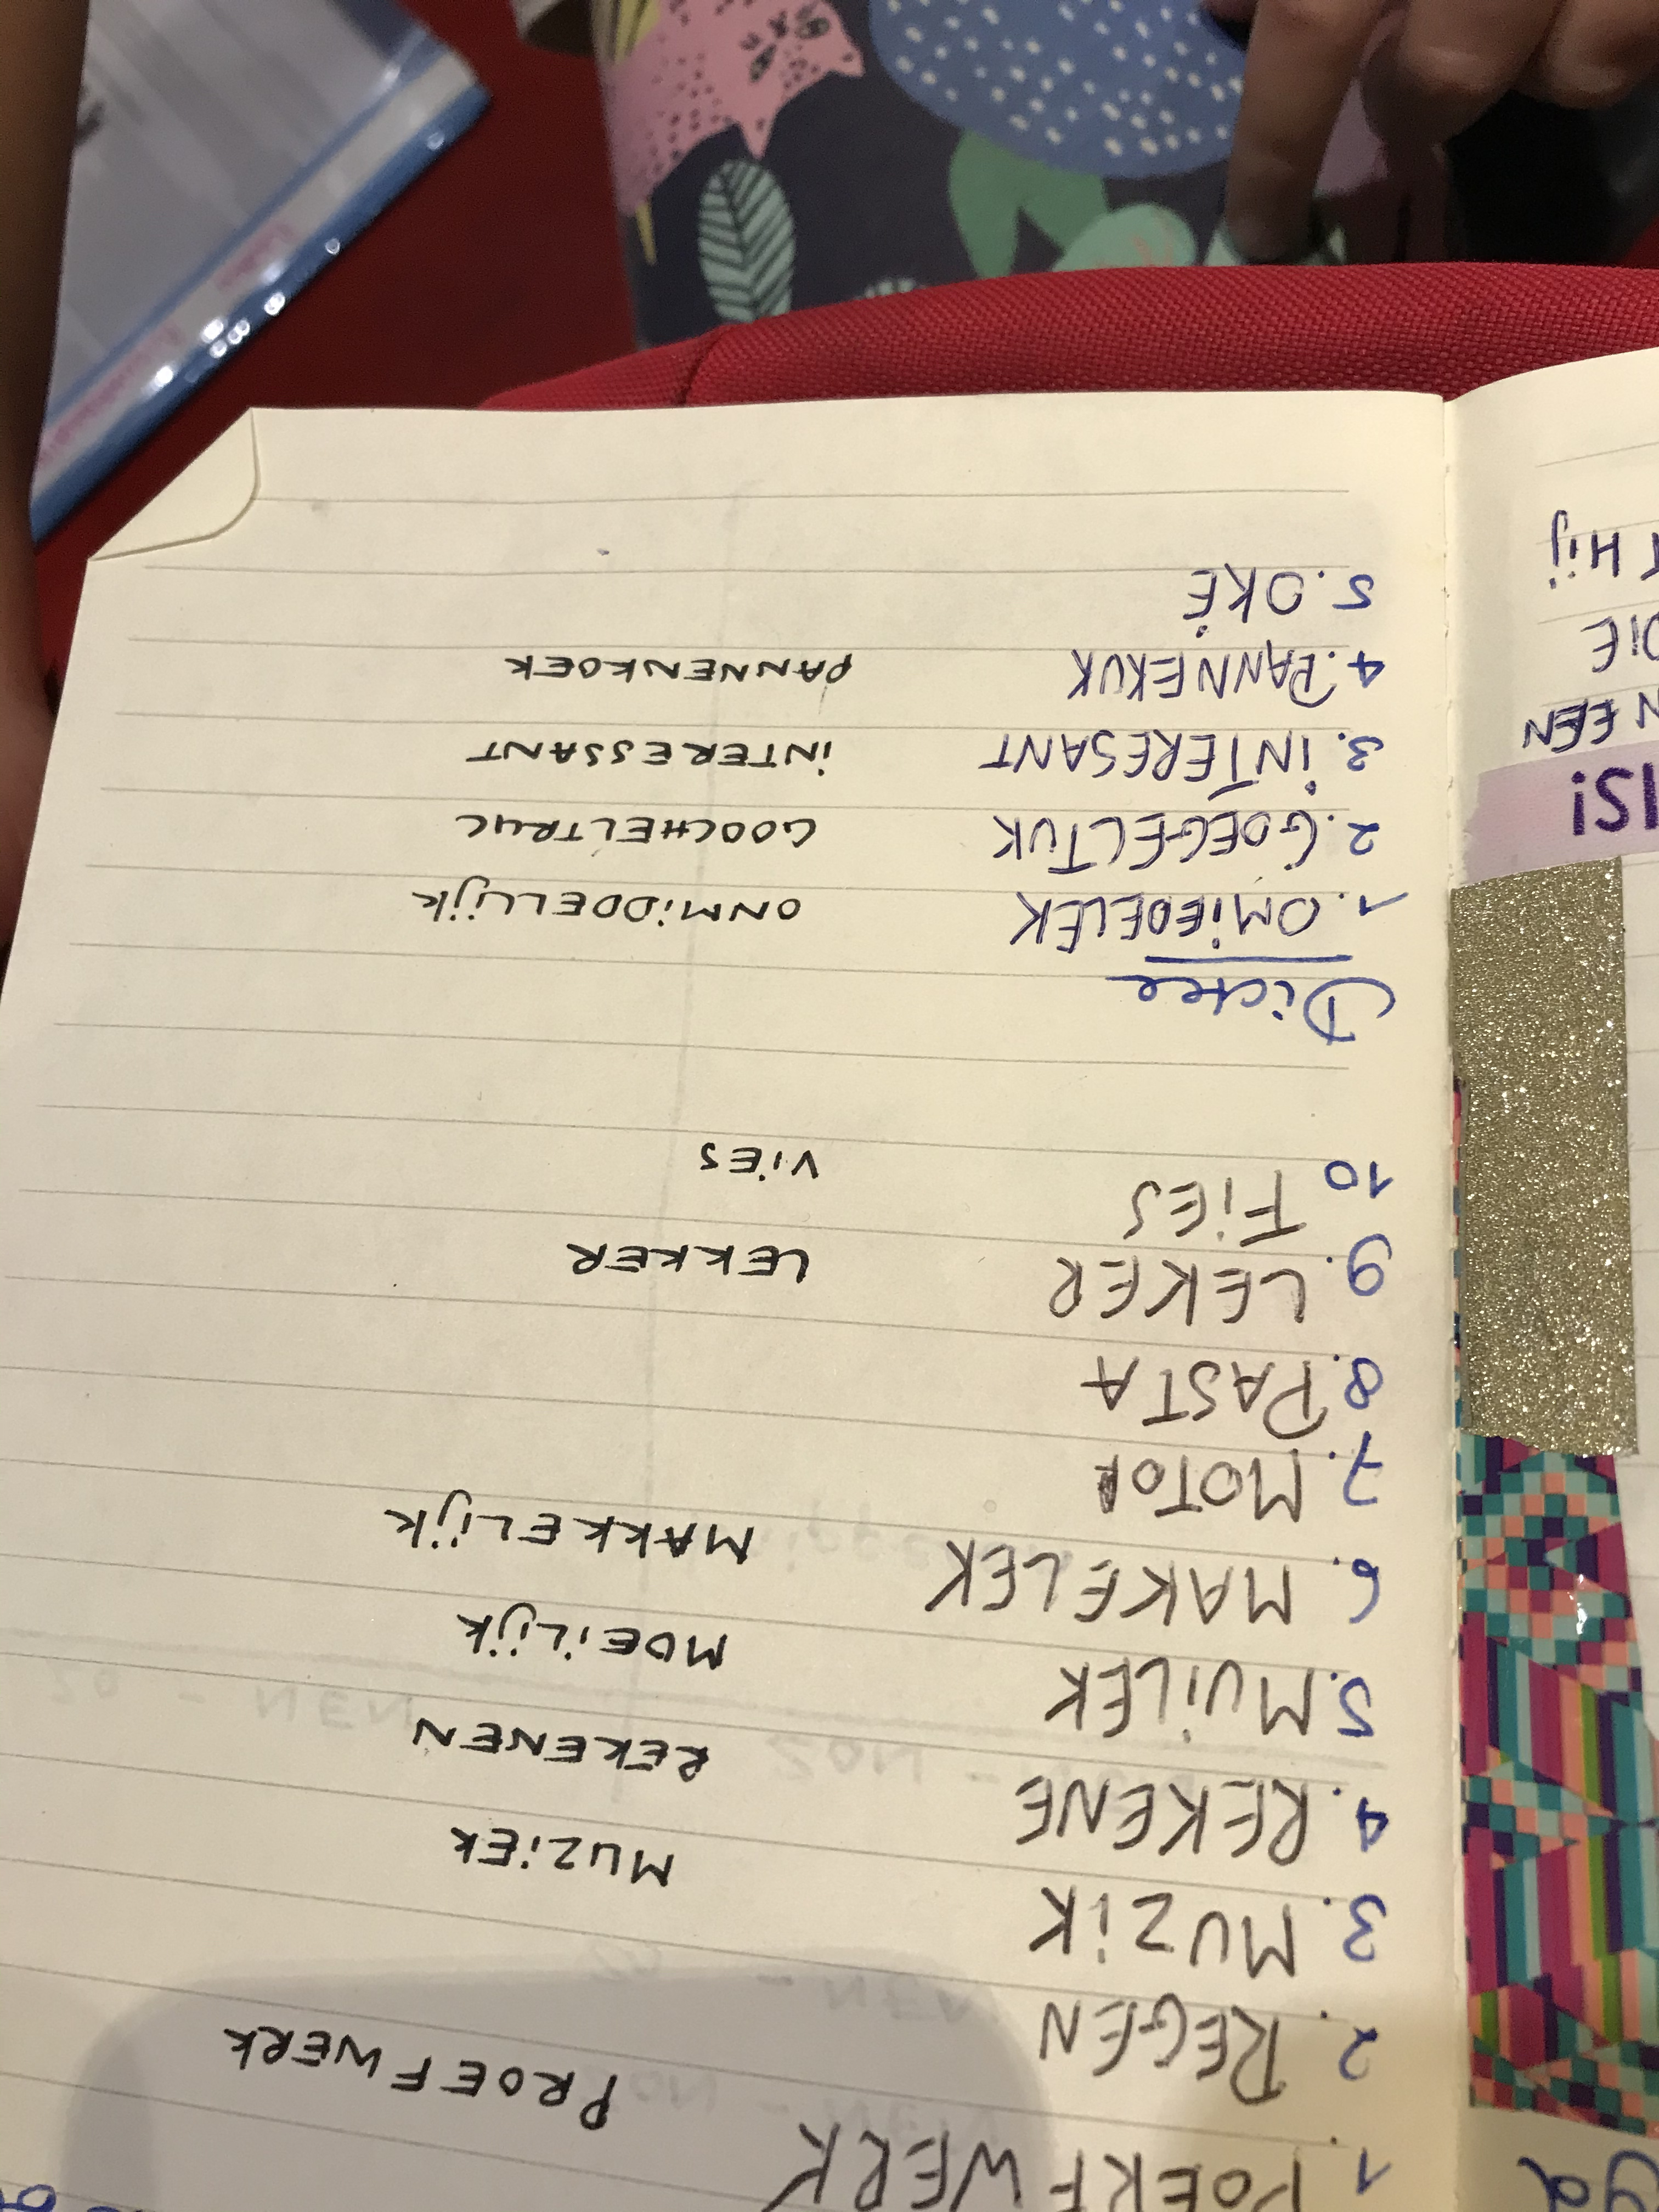 1. POEKFWERK PROEFWERK
2. REGEN
3. MUZiK MUZiEK
4. REKENE REKENEN
5. MUiLEK MOEiLijK
6. MAKELEK MAKKELijK
7. MOTOR
8. PASTA
9. LEKER LEKKER
10 FiES ViES
Dictee
1. OMiEDELEK ONMiDDELLijK
2. GOEGELTUK GOOCHELTRUC
3. iNTERESANT iNTERESSANT
4. PANNEKUK PANNENKOEK
5. OKÉ
iS!
EEN
DiE
Hij